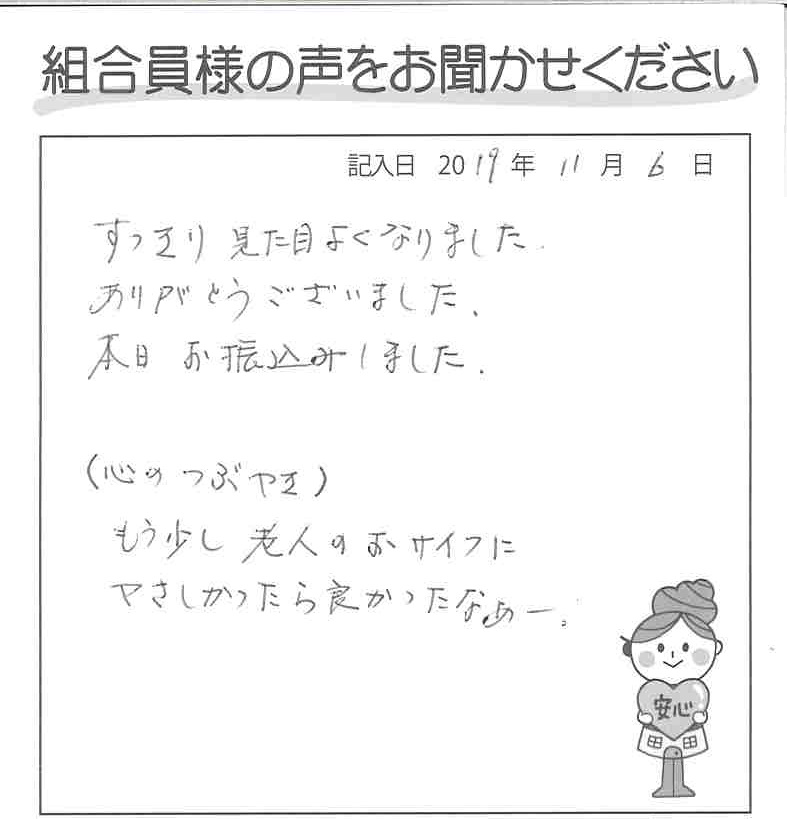 組合員様の声をお聞かせください
記入日 2019年 11月 6日
すっきり 見た目よくなりました.
ありがとうございました.
本日 お振込みしました.
(心のつぶやき)
もう少し 老人のおサイフに
やさしかったら良かったなぁー。
安心